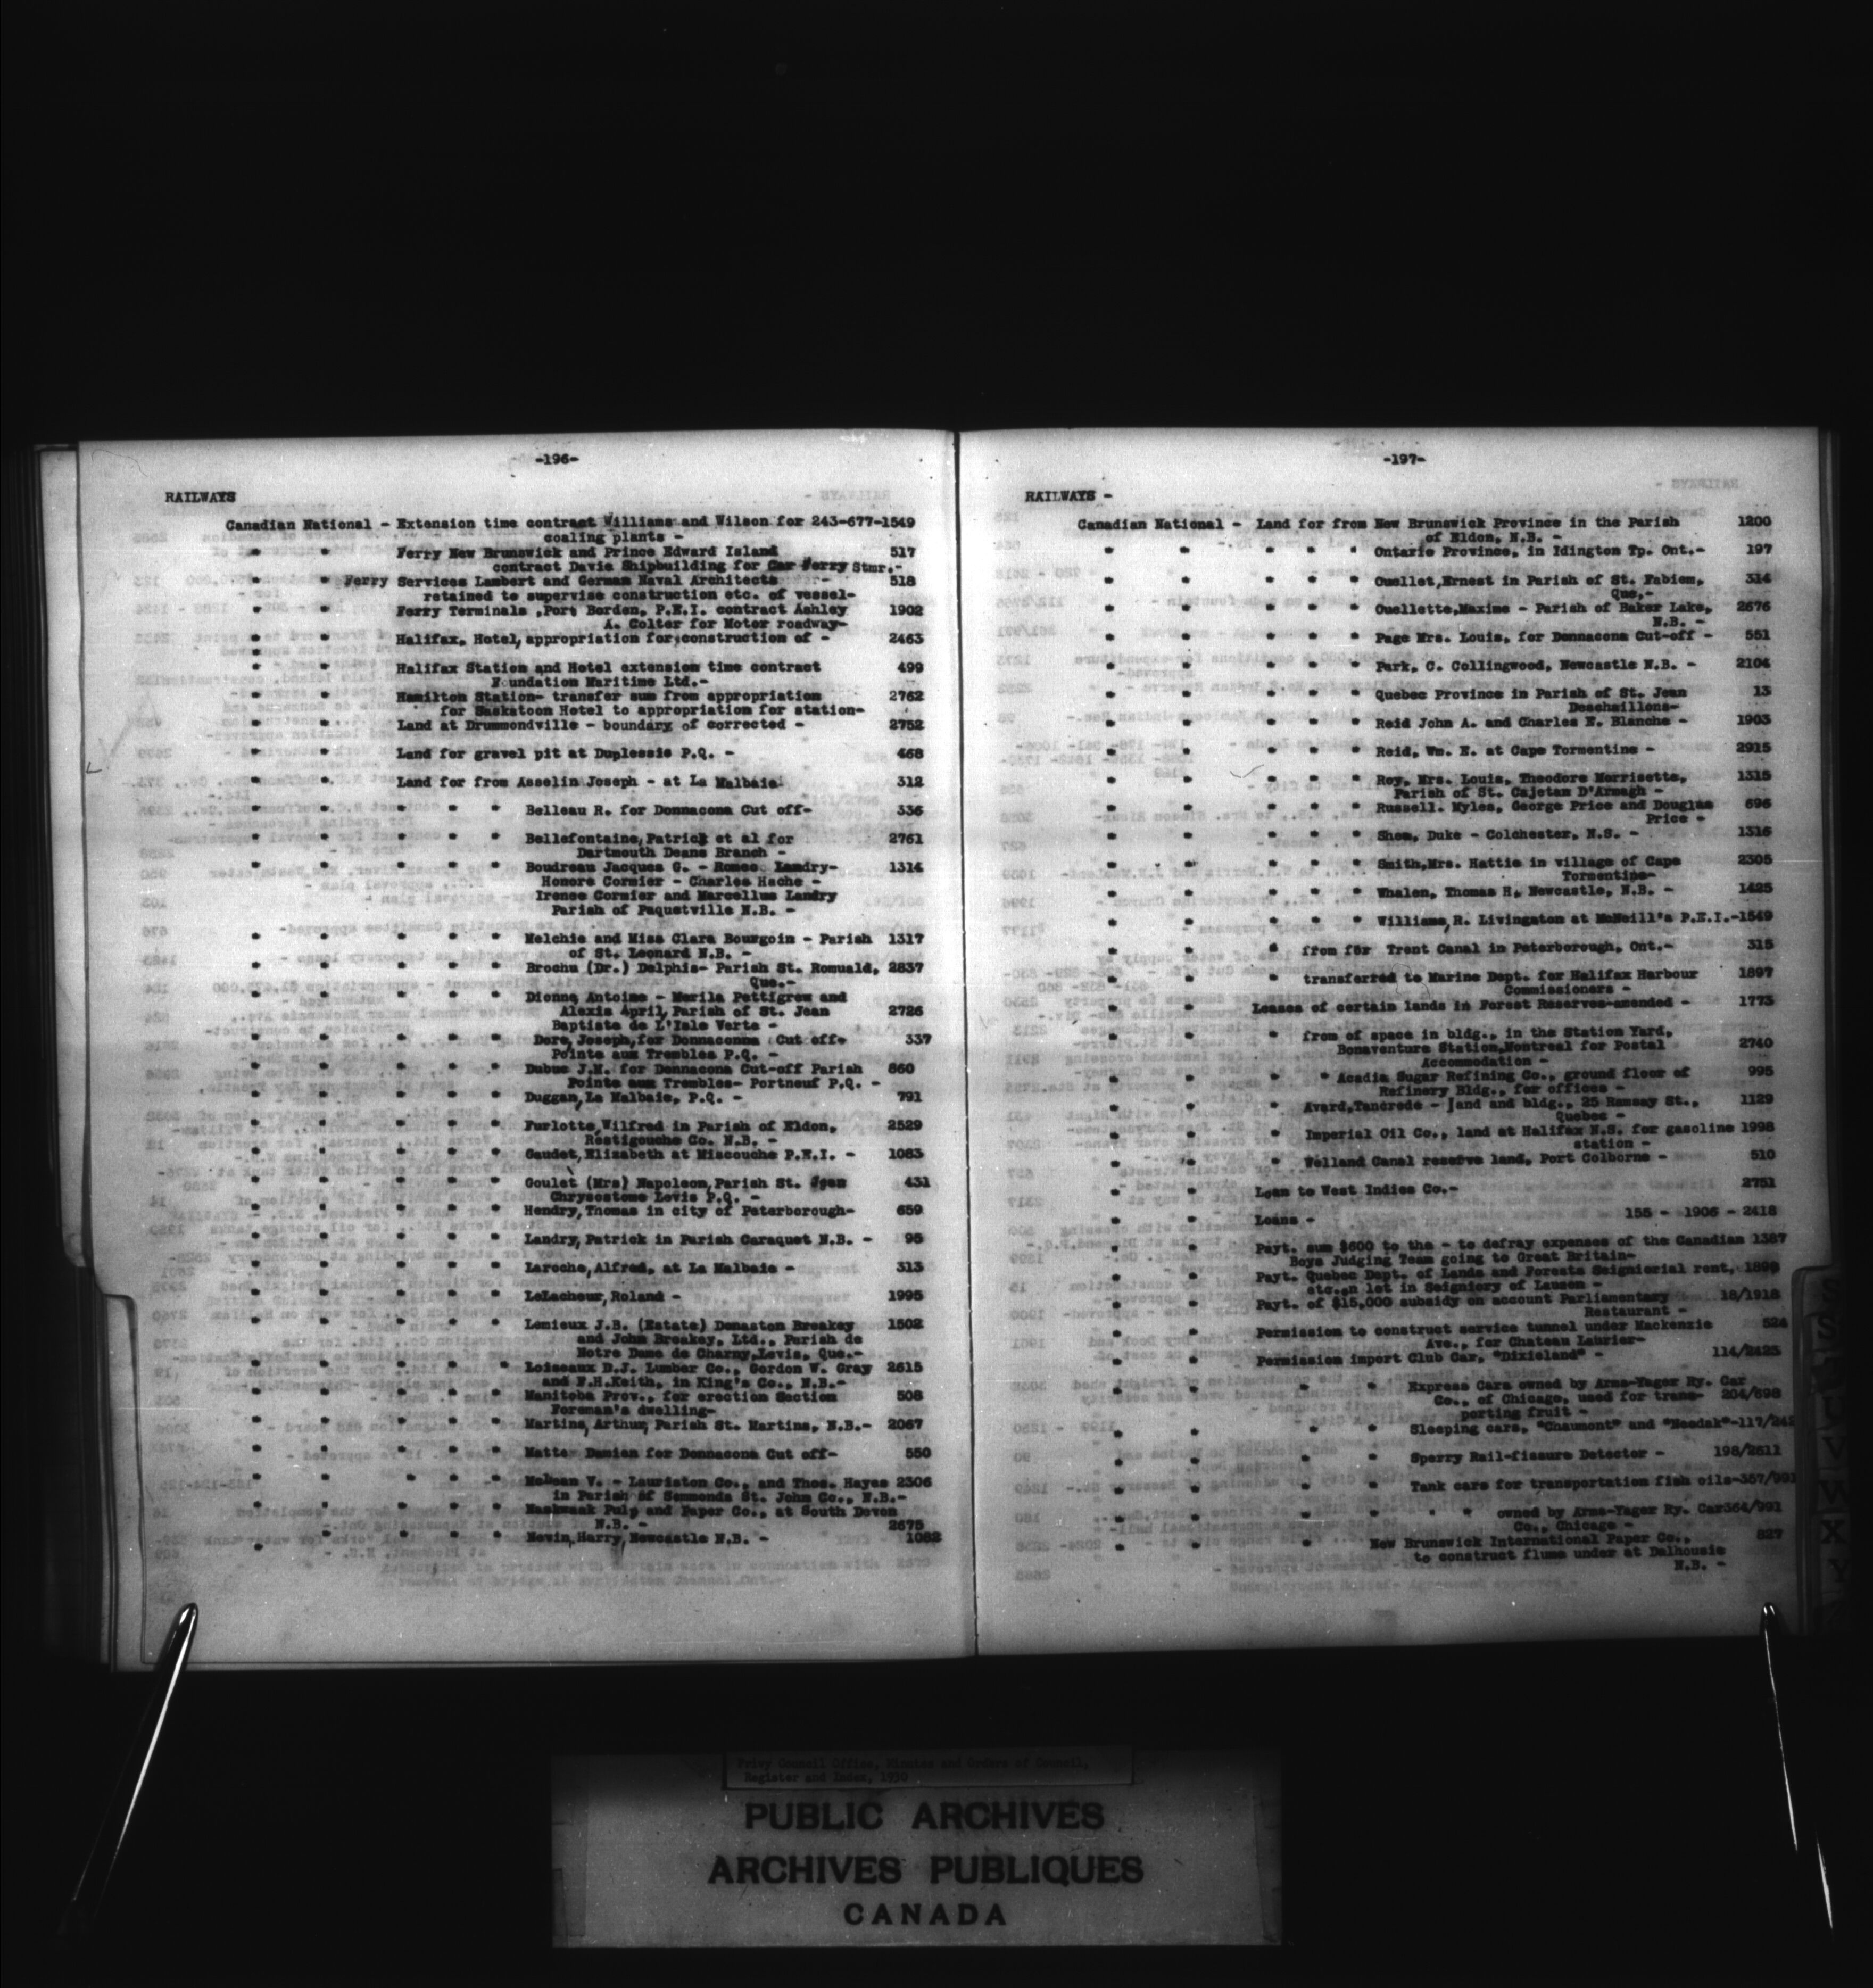 -196-
RAILWAYS
Canadian National - Extension time contract Williams and Wilson for 243-677-1549
coaling plants -
" " Ferry New Brunswick and Prince Edward Island 517
contract Davie Shipbuilding for Car Ferry Stmr.-
" " Ferry Services Lambert and German Naval Architects - 518
retained to supervise construction etc. of vessel-
" " Ferry Terminals ,Port Borden, P.E.I. contract Ashley 1902
A. Colter for Motor roadway-
" " Halifax, Hotel, appropriation for construction of - 2463
" " Halifax Station and Hotel extension time contract 499
Foundation Maritime Ltd.-
" " Hamilton Station- transfer sum from appropriation 2762
for Saskatoon Hotel to appropriation for station-
" " Land at Drummondville - boundary of corrected - 2752
" " Land for gravel pit at Duplessis P.Q. - 468
" " Land for from Asselin Joseph - at La Malbaie 312
" " " " " Belleau R. for Donnacona Cut off- 336
" " " " " Bellefontaine, Patrick et al for 2761
Dartmouth Deans Branch -
" " " " " Boudreau Jacques G. - Romeo Landry- 1314
Honore Cormier - Charles Hache -
Irenee Cormier and Marcellus Landry
Parish of Paquetville N.B. -
" " " " " Melchie and Miss Clara Bourgoin - Parish 1317
of St. Leonard N.B. -
" " " " " Brochu (Dr.) Delphis- Parish St. Romuald, 2837
Que.-
" " " " " Dionne Antoine - Merila Pettigrew and
Alexis April, Parish of St. Jean 2726
Baptiste de L'Isle Verte -
" " " " " Dore, Joseph, for Donnaconna Cut off- 337
Pointe aux Trembles P.Q. -
" " " " " Dubuc J.M. for Donnacona Cut-off Parish 860
Pointe aux Trembles- Portneuf P.Q. -
" " " " " Duggan, La Malbaie, P.Q. - 791
" " " " " Furlotte, Wilfred in Parish of Eldon, 2529
Restigouche Co. N.B. -
" " " " " Gaudet, Elizabeth at Miscouche P.E.I. - 1083
" " " " " Goulet (Mrs) Napoleon, Parish St. Jean 431
Chrysostome Levis P.Q. -
" " " " " Hendry, Thomas in city of Peterborough- 659
" " " " " Landry, Patrick in Parish Caraquet N.B. - 95
" " " " " Laroche, Alfred, at La Malbaie - 313
" " " " " LeLacheur, Roland - 1995
" " " " " Lemieux J.B. (Estate) Donaston Breakey 1502
and John Breakey, Ltd., Parish de
Notre Dame de Charny, Levis, Que.-
" " " " " Loiseaux D.J. Lumber Co., Gordon W. Gray 2615
and F.H.Keith, in King's Co., N.B.-
" " " " " Manitoba Prov., for erection Section 508
Foreman's dwelling-
" " " " " Martins, Arthur, Parish St. Martins, N.B.- 2067
" " " " " Matte Damien for Donnacona Cut off- 550
" " " " " McBean V. - Lauriston Co., and Thos. Hayes 2306
in Parish of Simmonds St. John Co., N.B.-
" " " " " Nashwaak Pulp and Paper Co., at South Devon
N.B. - 2675
" " " " " Nevin, Harry, Newcastle N.B. - 1082
-197-
RAILWAYS -
Canadian National - Land for from New Brunswick Province in the Parish 1200
of Eldon, N.B. -
" " " " " Ontario Province, in Idington Tp. Ont.- 197
" " " " " Ouellet, Ernest in Parish of St. Fabien, 314
Que,-
" " " " " Ouellette, Maxime - Parish of Baker Lake, 2676
N.B. -
" " " " " Page Mrs. Louis, for Donnacona Cut-off - 551
" " " " " Park, C. Collingwood, Newcastle N.B. - 2104
" " " " " Quebec Province in Parish of St. Jean 13
Deschaillons-
" " " " " Reid John A. and Charles N. Blanche - 1903
" " " " " Reid, Wm. N. at Cape Tormentine - 2915
" " " " " Roy, Mrs. Louis, Theodore Morrisette, 1315
Parish of St. Cajetan D'Armagh -
" " " " " Russell. Myles, George Price and Douglas 696
Price -
" " " " " Shea, Duke - Colchester, N.S. - 1316
" " " " " Smith, Mrs. Hattie in village of Cape 2305
Tormentine-
" " " " " Whalen, Thomas H, Newcastle, N.B. - 1425
" " " " " Williams, R. Livingston at McNeill's P.E.I.-1549
" " " from for Trent Canal in Peterborough, Ont.- 315
" " " transferred to Marine Dept. for Halifax Harbour 1897
Commissioners -
" " Leases of certain lands in Forest Reserves-amended - 1773
" " " from of space in bldg., in the Station Yard,
Bonaventure Station, Montreal for Postal 2740
Accommodation -
" " " " Acadia Sugar Refining Co., ground floor of 995
Refinery Bldg., for offices -
" " " Avard, Tancrede - land and bldg., 25 Ramsay St., 1129
Quebec -
" " " Imperial Oil Co., land at Halifax N.S. for gasoline 1998
station -
" " " Welland Canal reserve land, Port Colborne - 510
" " Loan to West Indies Co.- 2751
" " Loans - 155 - 1906 - 2418
" " Payt. sum $600 to the - to defray expenses of the Canadian 1387
Boys Judging Team going to Great Britain-
" " Payt. Quebec Dept. of Lands and Forests Seigniorial rent, 1899
etc.on lot in Seigniory of Lauzon -
" " Payt. of $15,000 subsidy on account Parliamentary 18/1918
Restaurant -
" " Permission to construct service tunnel under Mackenzie 524
Ave., for Chateau Laurier-
" " Permission import Club Car, "Dixieland" - 114/2423
" " " " Express Cars owned by Arms-Yager Ry. Car
Co., of Chicago, used for trans- 204/898
porting fruit -
" " " " Sleeping cars, "Chaumont" and "Neodak"-117/242
" " " " Sperry Rail-fissure Detector - 198/2611
" " " " Tank cars for transportation fish oils-357/991
" " " " " " owned by Arms-Yager Ry. Car364/991
Co., Chicago -
" " " New Brunswick International Paper Co., 827
to construct flume under at Dalhousie
N.B. -
S
T
U
V
W
X
Y
Privy Council Office, Minutes and Orders of Council,
Register and Index, 1930
PUBLIC ARCHIVES
ARCHIVES PUBLIQUES
CANADA